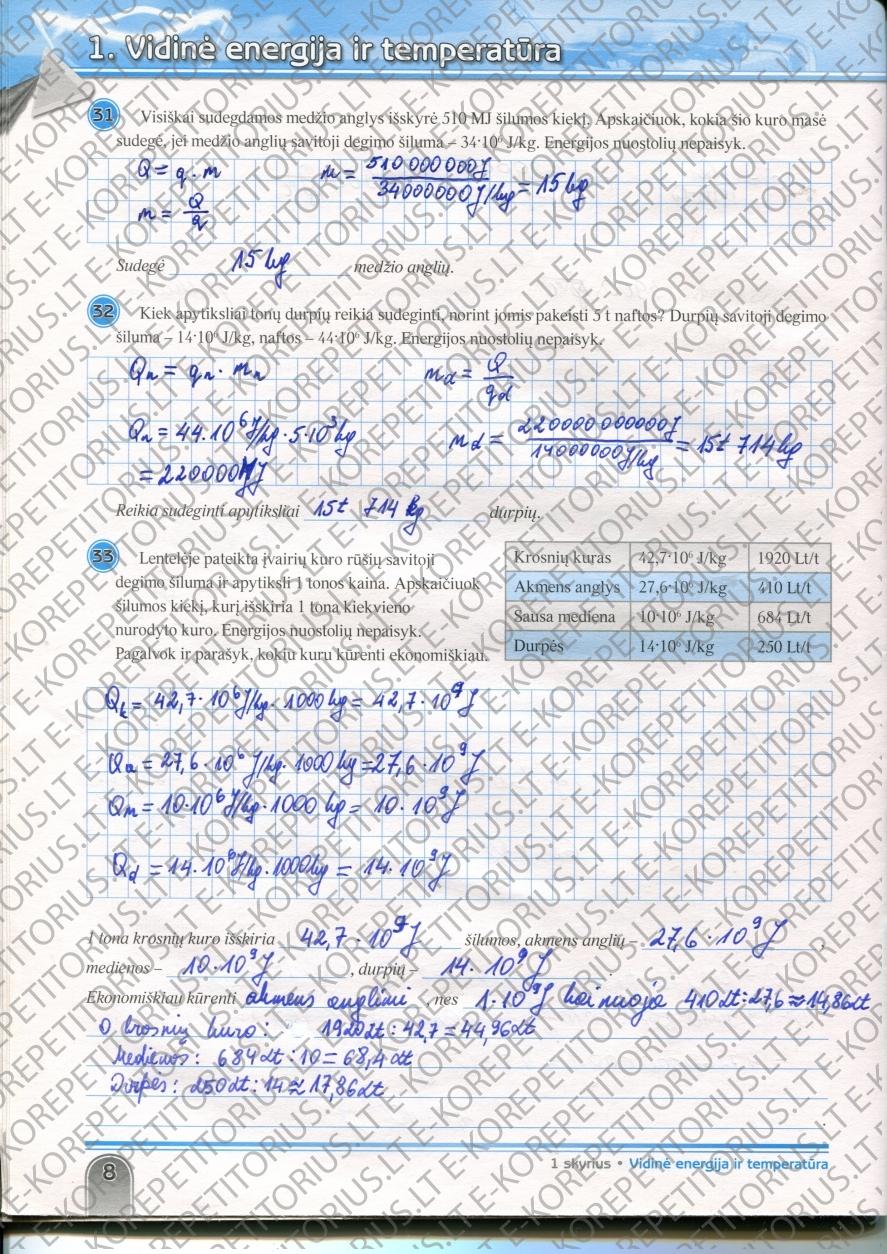 1. Vidinė energija ir temperatūra
31 Visiškai sudegdamos medžio anglys išskyrė 510 MJ šilumos kiekį. Apskaičiuok, kokia šio kuro masė
sudegė, jei medžio anglių savitoji degimo šiluma – 34·10⁶ J/kg. Energijos nuostolių nepaisyk.
Q = q · m m = 510 000 000 J / 34000000 J/kg = 15 kg
m = Q / q
Sudegė 15 kg medžio anglių.
32 Kiek apytiksliai tonų durpių reikia sudeginti, norint jomis pakeisti 5 t naftos? Durpių savitoji degimo
šiluma – 14·10⁶ J/kg, naftos – 44·10⁶ J/kg. Energijos nuostolių nepaisyk.
Qn = qn · mn md = Q / qd
Qn = 44·10⁶ J/kg · 5·10³ kg md = 220000 000000 J / 14000000 J/kg = 15t 714 kg
= 220000 MJ
Reikia sudeginti apytiksliai 15t 714 kg durpių.
33 Lentelėje pateikta įvairių kuro rūšių savitoji
degimo šiluma ir apytiksli 1 tonos kaina. Apskaičiuok
šilumos kiekį, kurį išskiria 1 tona kiekvieno
nurodyto kuro. Energijos nuostolių nepaisyk.
Pagalvok ir parašyk, kokiu kuru kūrenti ekonomiškiau.
Krosnių kuras 42,7·10⁶ J/kg 1920 Lt/t
Akmens anglys 27,6·10⁶ J/kg 410 Lt/t
Sausa mediena 10·10⁶ J/kg 684 Lt/t
Durpės 14·10⁶ J/kg 250 Lt/t
Qk = 42,7 · 10⁶ J/kg · 1000 kg = 42,7 · 10⁹ J
Qa = 27,6 · 10⁶ J/kg · 1000 kg = 27,6 · 10⁹ J
Qm = 10·10⁶ J/kg · 1000 kg = 10 · 10⁹ J
Qd = 14 · 10⁶ J/kg · 1000 kg = 14 · 10⁹ J
1 tona krosnių kuro išskiria 42,7 · 10⁹ J šilumos, akmens anglių – 27,6 · 10⁹ J,
medienos – 10·10⁹ J, durpių – 14 · 10⁹ J.
Ekonomiškiau kūrenti akmens anglimi, nes 1·10⁹ J kainuoja 410 Lt : 27,6 ≈ 14,86 Lt
O krosnių kuro: 1920 Lt : 42,7 = 44,96 Lt
Medienos: 684 Lt : 10 = 68,4 Lt
Durpės: 250 Lt : 14 ≈ 17,86 Lt
8
1 skyrius • Vidinė energija ir temperatūra
E-KOREPETITORIUS.LT